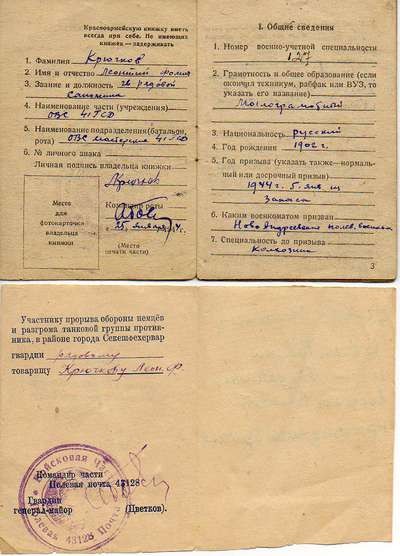 Красноармейскую книжку иметь
всегда при себе. Не имеющих
книжек — задерживать
1. Фамилия Крючков
2. Имя и отчество
3. Звание и должность гв. рядовой
4. Наименование части (учреждения)
ОВС 41 ГСД
5. Наименование подразделения (батальон,
рота) ОВС 41 ГСД
6. № личного знака
Личная подпись владельца книжки
Крючков
Место
для
фотокарточки
владельца
книжки
Командир роты
25 января 44 г.
(Место
печати части)
I. Общие сведения
1. Номер военно-учетной специальности
127
2. Грамотность и общее образование (если
окончил техникум, рабфак или ВУЗ, то
указать его название)
Малограмотный
3. Национальность русский
4. Год рождения 1902 г.
5. Год призыва (указать также — нормаль-
ный или досрочный призыв)
1944 г. 5. янв из
запаса
6. Каким военкоматом призван
7. Специальность до призыва
колхозник
3
Участнику прорыва обороны немцев
и разгрома танковой группы против-
ника, в районе города Секешфехервар
гвардии рядовому
товарищу Крючкову Леон. Ф.
Войсковая Часть
Полевая Почта 43128
Командир части
Полевая почта 43128
Гвардии
генерал-майор (Цветков).